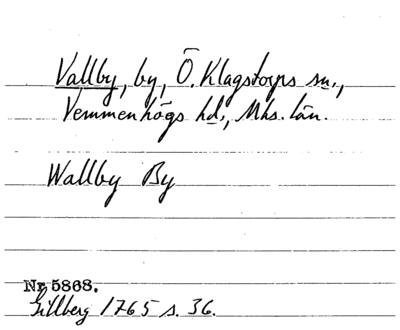 Vallby, by, Ö. Klagstorps sn.,
Vemmenhögs hd., Mhs. län.
Wallby By
Nr 5868.
Gillberg 1765 s. 36.